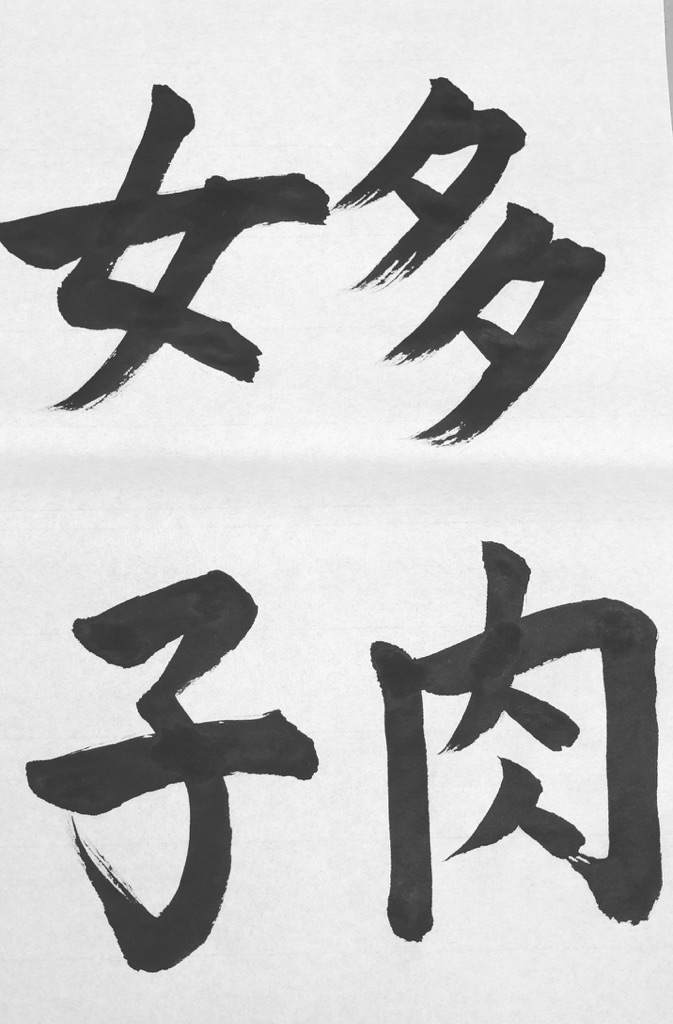 多肉
女子